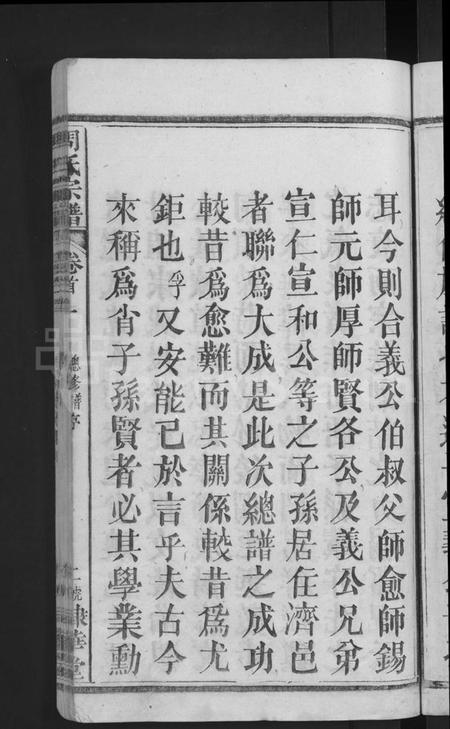 耳今則合義公伯叔父師愈師錫
師元師厚師賢各公及義公兄弟
宣仁宣和公等之子孫居在濟邑
者聯爲大成是此次總譜之成功
較昔爲愈難而其關係較昔爲尤
鉅也孚又安能已於言乎夫古今
來稱爲肖子孫賢者必其學業勳
周氏宗譜
卷首一
總修譜序